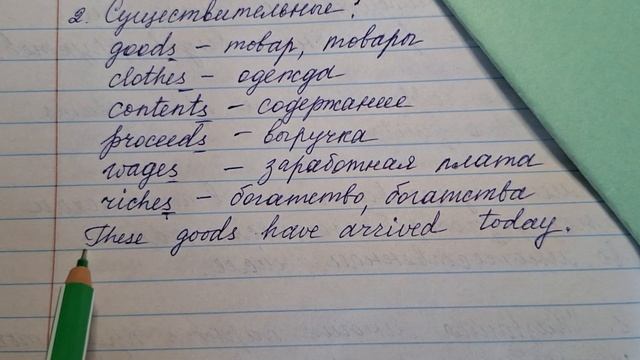 2. Существительные:
goods – товар, товары
clothes – одежда
contents – содержание
proceeds – выручка
wages – заработная плата
riches – богатство, богатства
These goods have arrived today.